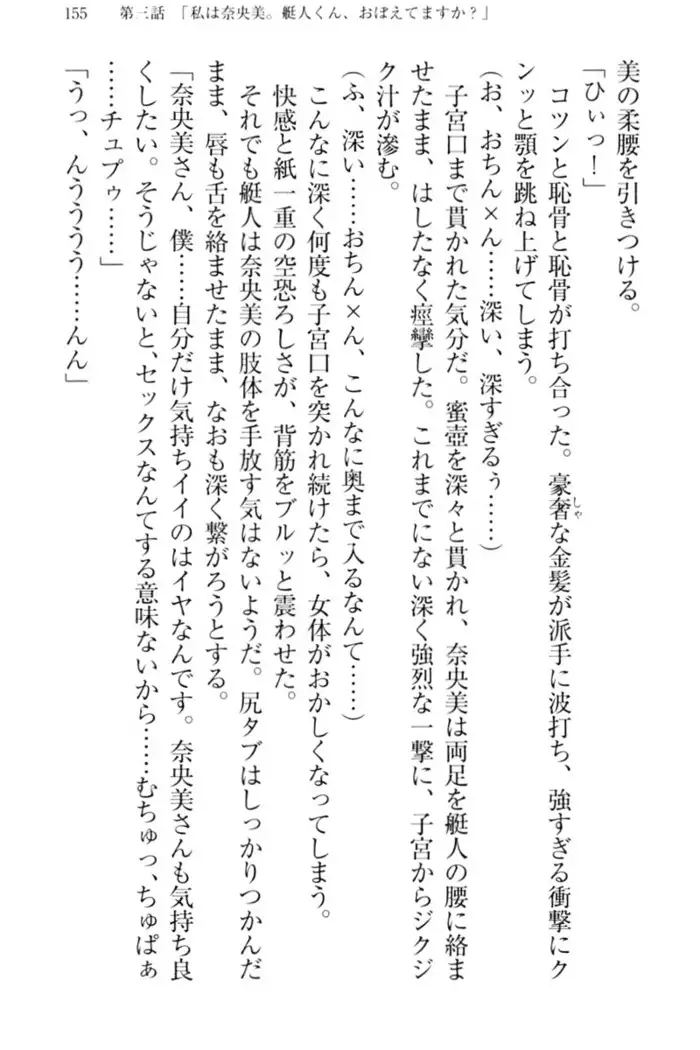 155　第三話　「私は奈央美。艇人くん、おぼえてますか？」
美の柔腰を引きつける。
「ひぃっ！」
　コツンと恥骨と恥骨が打ち合った。豪奢な金髪が派手に波打ち、強すぎる衝撃にク
しゃ
ンッと顎を跳ね上げてしまう。
（お、おちん×ん……深い、深すぎるぅ……）
　子宮口まで貫かれた気分だ。蜜壺を深々と貫かれ、奈央美は両足を艇人の腰に絡ま
せたまま、はしたなく痙攣した。これまでにない深く強烈な一撃に、子宮からジクジ
ク汁が滲む。
（ふ、深い……おちん×ん、こんなに奥まで入るなんて……）
　こんなに深く何度も子宮口を突かれ続けたら、女体がおかしくなってしまう。
　快感と紙一重の空恐ろしさが、背筋をブルッと震わせた。
　それでも艇人は奈央美の肢体を手放す気はないようだ。尻タブはしっかりつかんだ
まま、唇も舌を絡ませたまま、なおも深く繋がろうとする。
「奈央美さん、僕……自分だけ気持ちイイのはイヤなんです。奈央美さんも気持ち良
くしたい。そうじゃないと、セックスなんてする意味ないから……むちゅっ、ちゅぱぁ
……チュプゥ……」
「うっ、んうううう……んん」